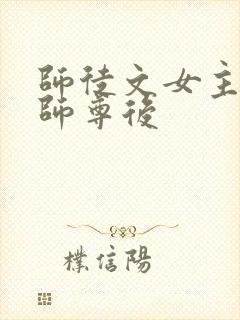 師徒文女主
師尊後
樸信陽